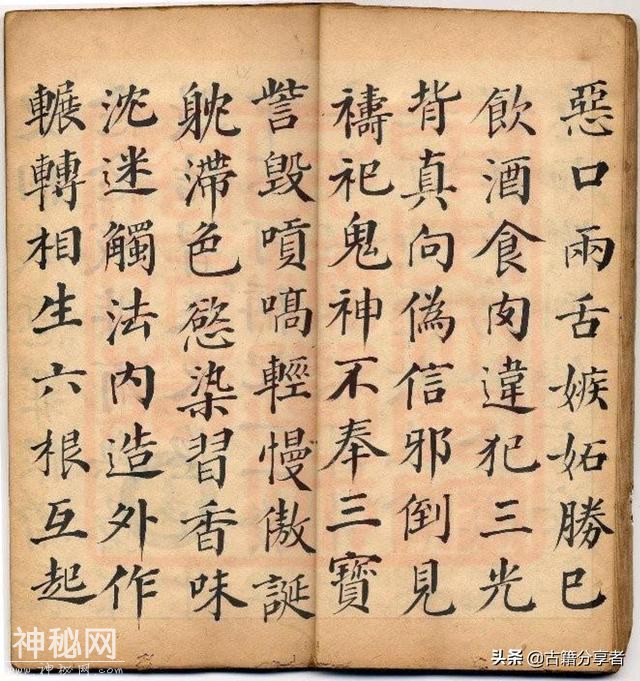 惡口兩舌嫉妬勝巳
飲酒食肉違犯三光
背真向偽信邪倒見
禱祀鬼神不奉三寶
訾毀嘖嗃輕慢傲誕
躭滯色慾染習香味
沈迷觸法内造外作
輾轉相生六根互起
神秘网
头条 @古籍分享者